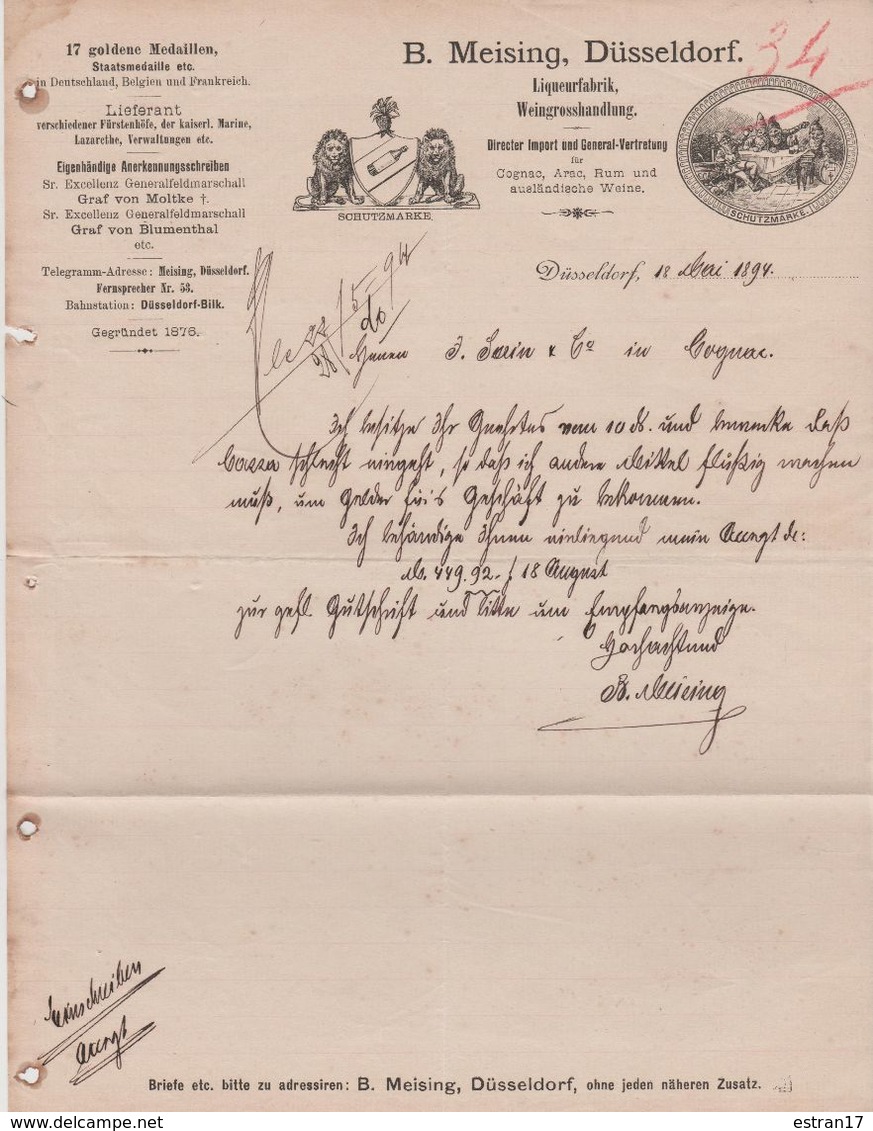 17 goldene Medaillen,
Staatsmedaille etc.
in Deutschland, Belgien und Frankreich.
Lieferant
verschiedener Fürstenhöfe, der kaiserl. Marine,
Lazarethe, Verwaltungen etc.
Eigenhändige Anerkennungsschreiben
Sr. Excellenz Generalfeldmarschall
Graf von Moltke †.
Sr. Excellenz Generalfeldmarschall
Graf von Blumenthal
etc.
Telegramm-Adresse: Meising, Düsseldorf.
Fernsprecher Nr. 53.
Bahnstation: Düsseldorf-Bilk.
Gegründet 1876.
B. Meising, Düsseldorf.
34
Liqueurfabrik,
Weingrosshandlung.
Directer Import und General-Vertretung
für
Cognac, Arac, Rum und
ausländische Weine.
SCHUTZMARKE.
SCHUTZMARKE.
Düsseldorf, 18 Mai 1894.
5-94
Herren J. Sorin & Co in Cognac.
Ich besitze Ihr Geehrtes vom 10 ds. und bemerke daß
Cassa schlecht eingeht, so daß ich andere Mittel flüßig machen
muß, um Gelder für's Geschäft zu bekommen.
Ich behändige Ihnen einliegend mein Accept de:
M. 449.92.- / 18 August
zur gefl. Gutschrift und bitte um Empfangsanzeige.
Hochachtend
B. Meising
Einschreiben
Accept
Briefe etc. bitte zu adressiren: B. Meising, Düsseldorf, ohne jeden näheren Zusatz.
delcampe.net
estran17